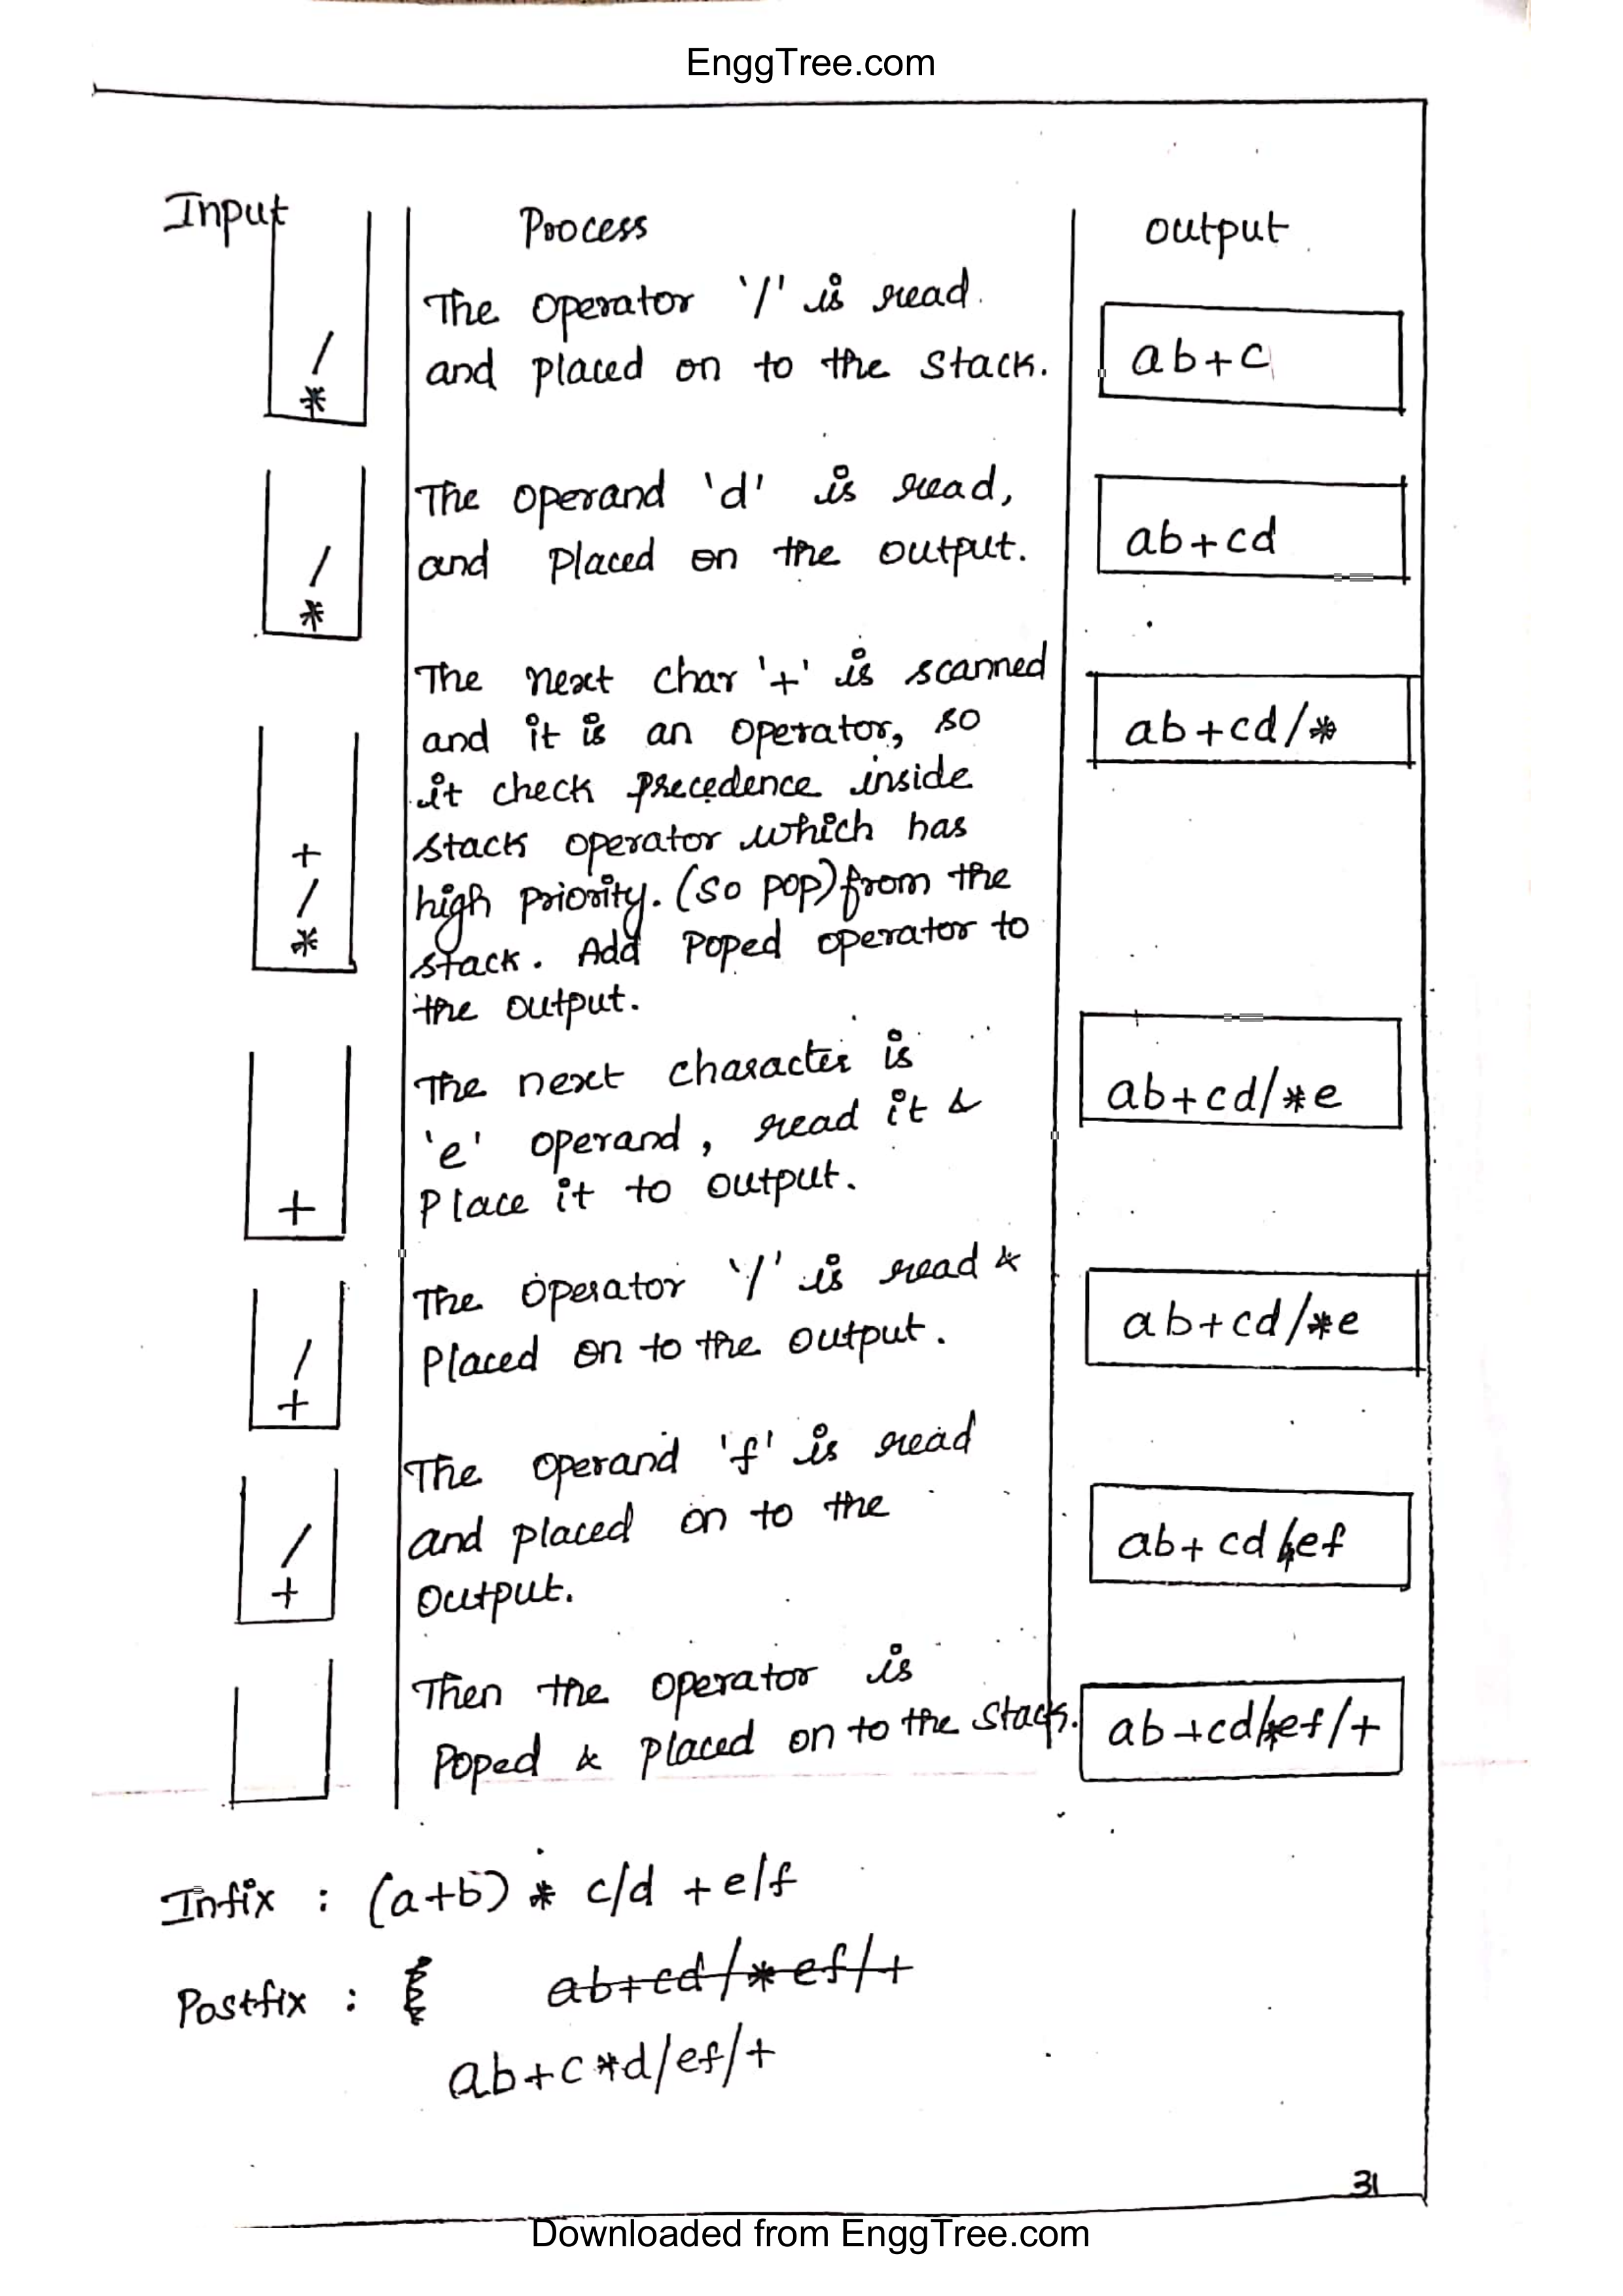 EnggTree.com
Input
Process
output
/
*
The operator '/' is read.
and placed on to the stack.
ab+c
/
*
The operand 'd' is read,
and placed on the output.
ab+cd
+
/
*
The next char '+' is scanned
and it is an operator, so
it check precedence inside
stack operator which has
high priority. (so pop) from the
stack. Add Poped operator to
the output.
ab+cd/*
+
The next character is
'e' operand, read it &
Place it to output.
ab+cd/*e
/
+
The operator '/' is read &
Placed on to the output.
ab+cd/*e
/
+
The operand 'f' is read
and placed on to the
output.
ab+cd/*ef
Then the operator is
Poped & placed on to the stack.
ab+cd/*ef/+
Infix : (a+b) * c/d + e/f
Postfix : ab+cd/*ef/+
ab+c*d/ef/+
31
Downloaded from EnggTree.com